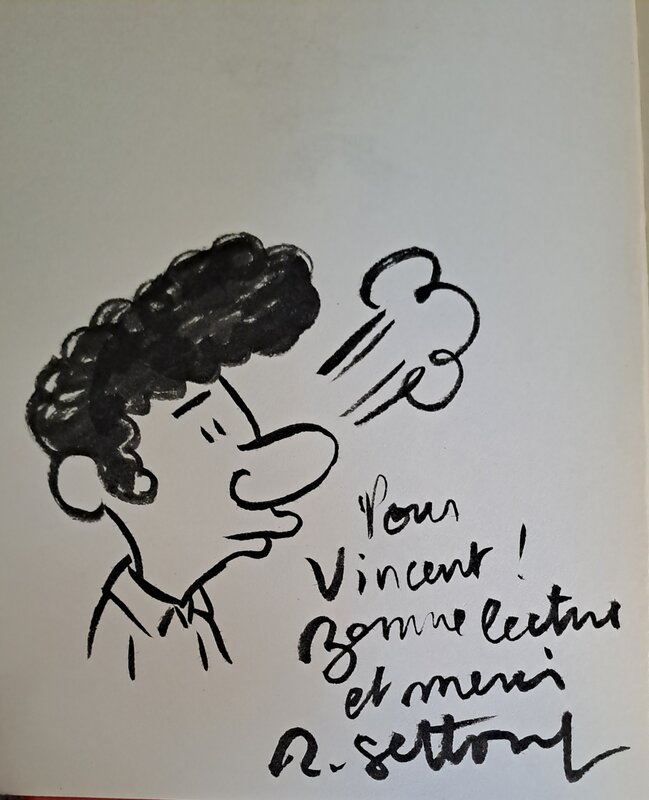 Pour
Vincent !
Bonne lecture
et merci
R. Sattouf